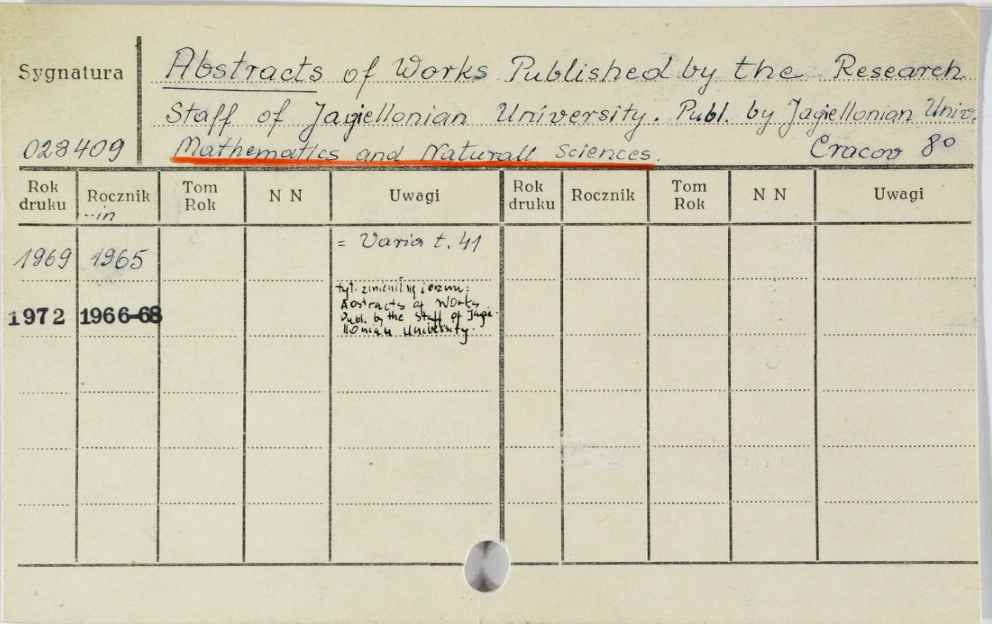 Sygnatura
Abstracts of Works Published by the Research
Staff of Jagiellonian University. Publ. by Jagiellonian Univ.
028409 Mathematics and Naturall Sciences. Cracov 8°
Rok druku Rocznik Tom Rok N N Uwagi Rok druku Rocznik Tom Rok N N Uwagi
1969 1965 = Varia t. 41
1972 1966-68 tyt. zmienił się
Abstracts of Works
Publ. by the Staff of Jagie-
llonian University.